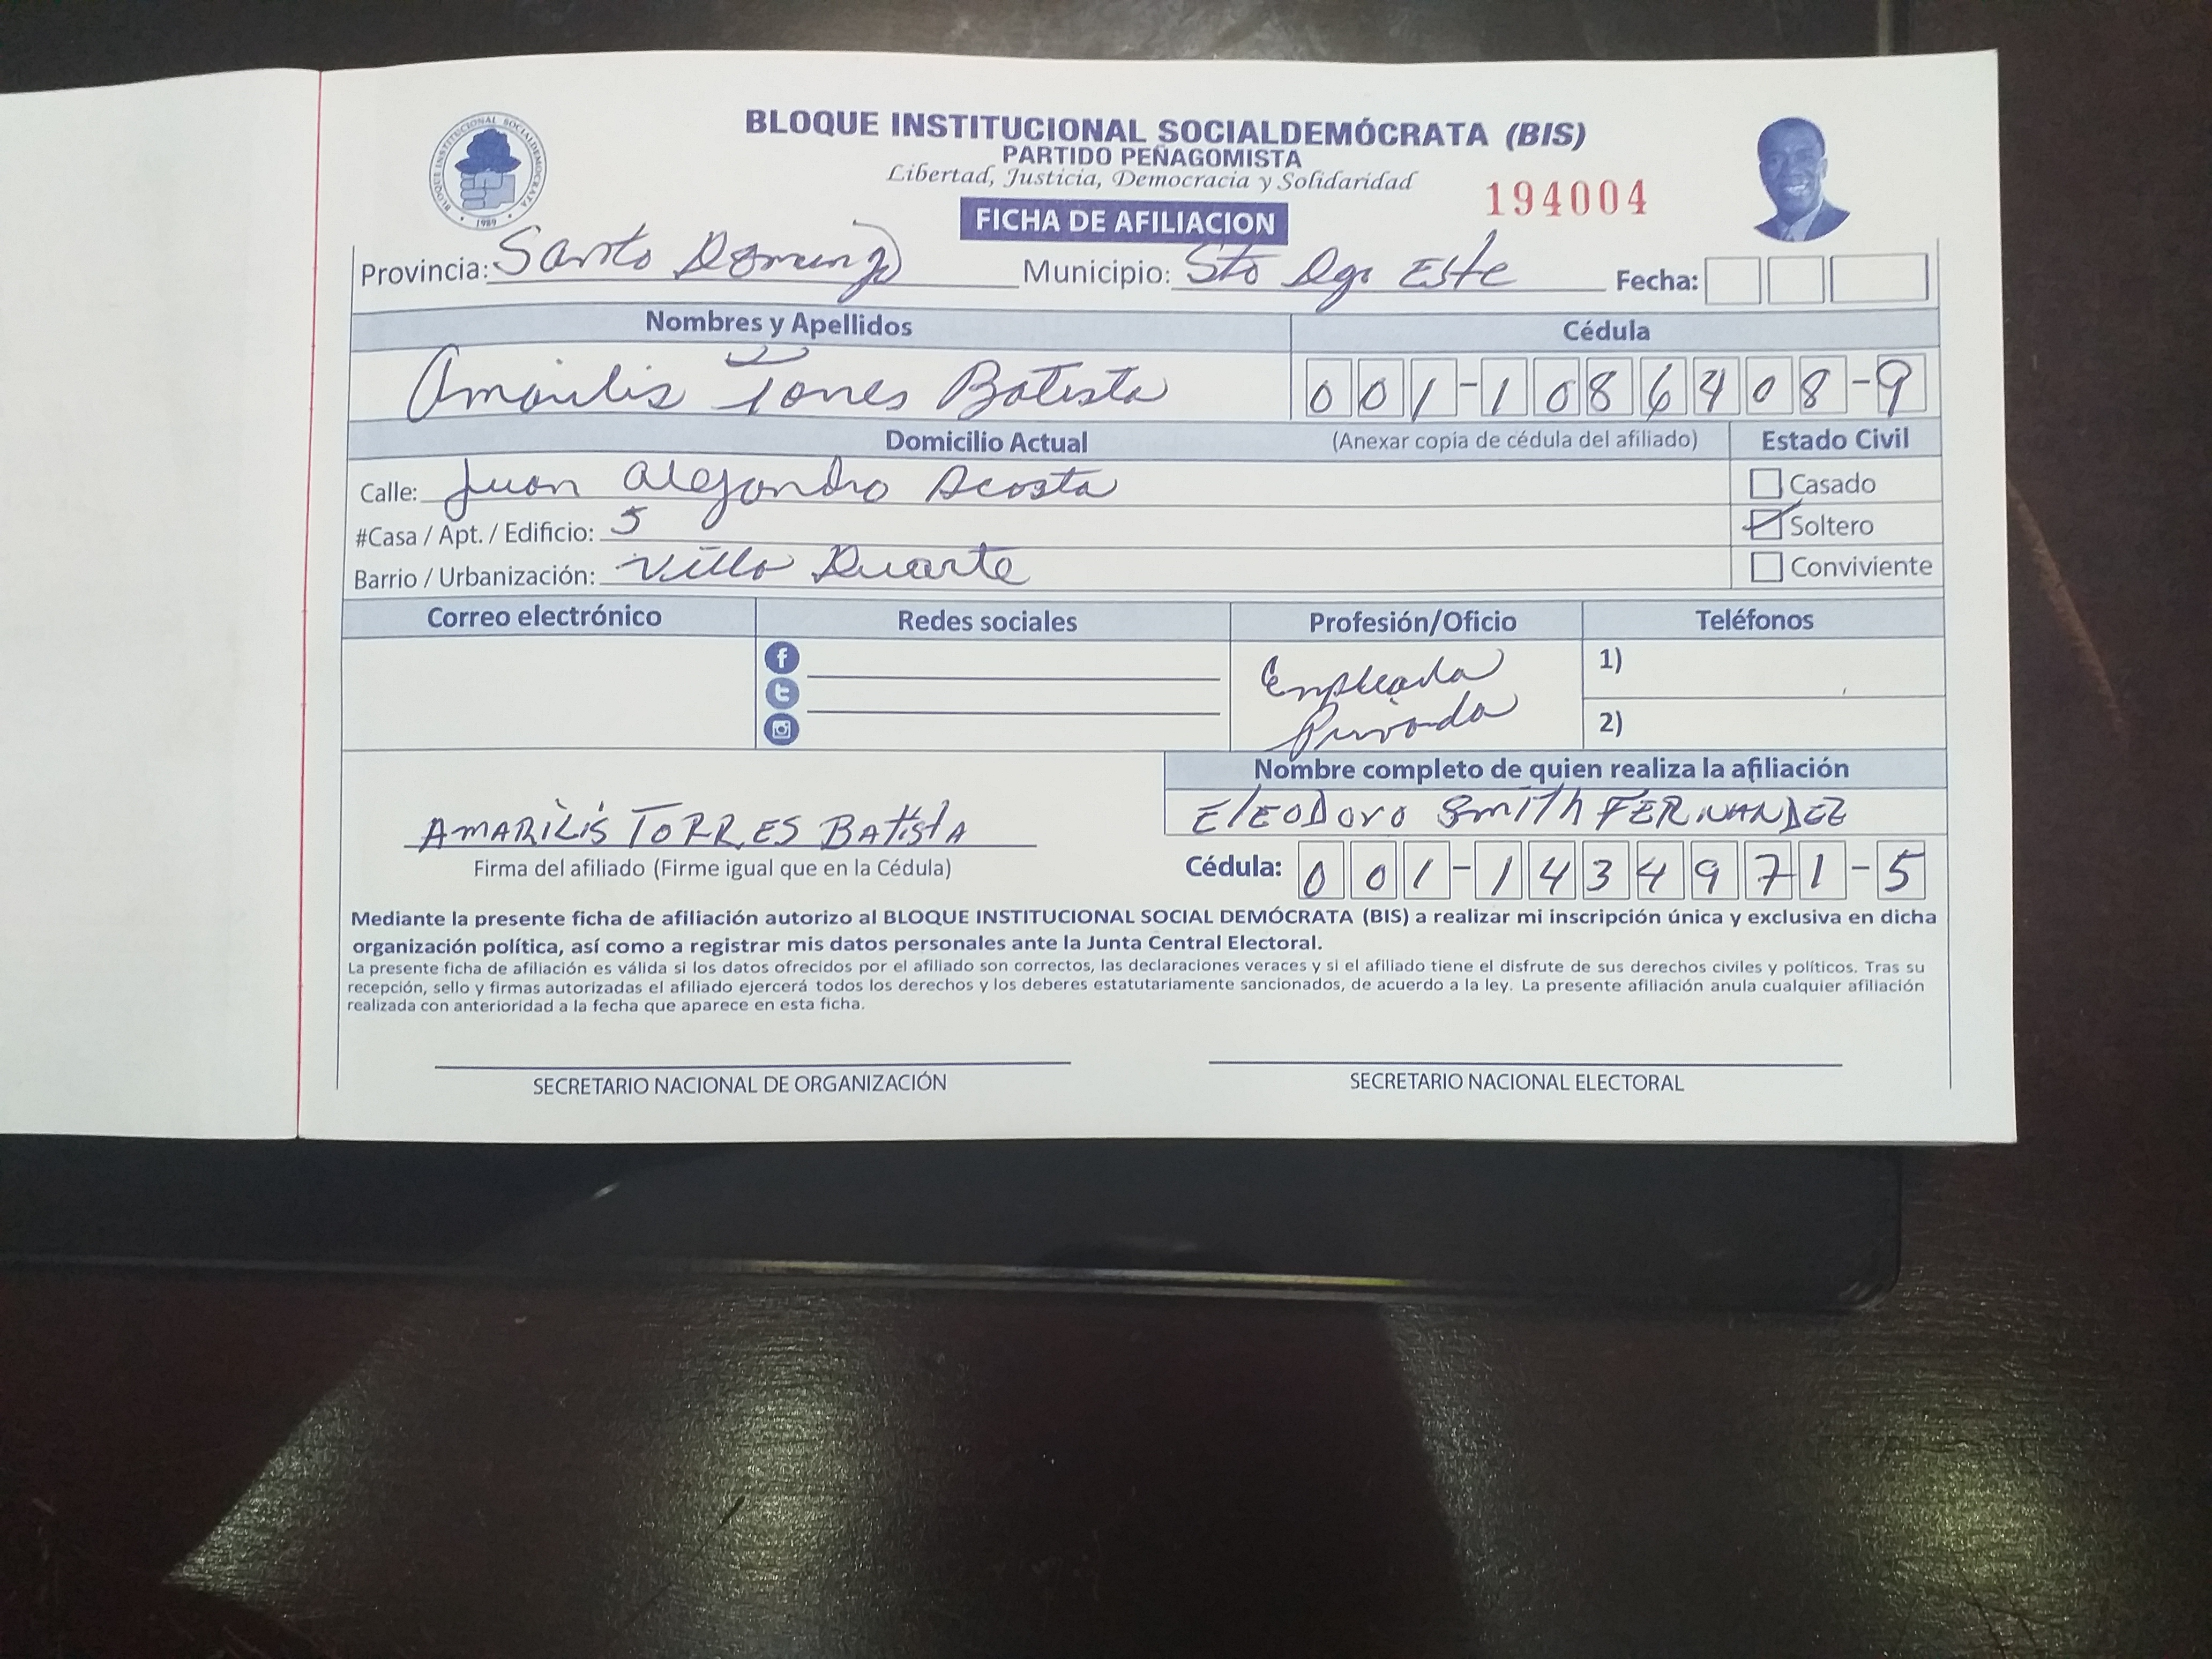 BLOQUE INSTITUCIONAL SOCIALDEMÓCRATA 1989
BLOQUE INSTITUCIONAL SOCIALDEMÓCRATA (BIS)
PARTIDO PEÑAGOMISTA
Libertad, Justicia, Democracia y Solidaridad
194004
FICHA DE AFILIACION
Provincia: Santo Domingo Municipio: Sto Dgo Este Fecha:
Nombres y Apellidos Cédula
Amarilis Torres Batista 001-1086408-9
Domicilio Actual (Anexar copia de cédula del afiliado) Estado Civil
Calle: Juan Alejandro Acosta Casado
#Casa / Apt. / Edificio: 5 Soltero
Barrio / Urbanización: Villa Duarte Conviviente
Correo electrónico Redes sociales Profesión/Oficio Teléfonos
Empleada 1)
Privada 2)
Nombre completo de quien realiza la afiliación
AMARILIS TORRES BAtistA ElEODoro SmiTh FERNANDEZ
Firma del afiliado (Firme igual que en la Cédula) Cédula: 001-1434971-5
Mediante la presente ficha de afiliación autorizo al BLOQUE INSTITUCIONAL SOCIAL DEMÓCRATA (BIS) a realizar mi inscripción única y exclusiva en dicha
organización política, así como a registrar mis datos personales ante la Junta Central Electoral.
La presente ficha de afiliación es válida si los datos ofrecidos por el afiliado son correctos, las declaraciones veraces y si el afiliado tiene el disfrute de sus derechos civiles y políticos. Tras su
recepción, sello y firmas autorizadas el afiliado ejercerá todos los derechos y los deberes estatutariamente sancionados, de acuerdo a la ley. La presente afiliación anula cualquier afiliación
realizada con anterioridad a la fecha que aparece en esta ficha.
SECRETARIO NACIONAL DE ORGANIZACIÓN SECRETARIO NACIONAL ELECTORAL